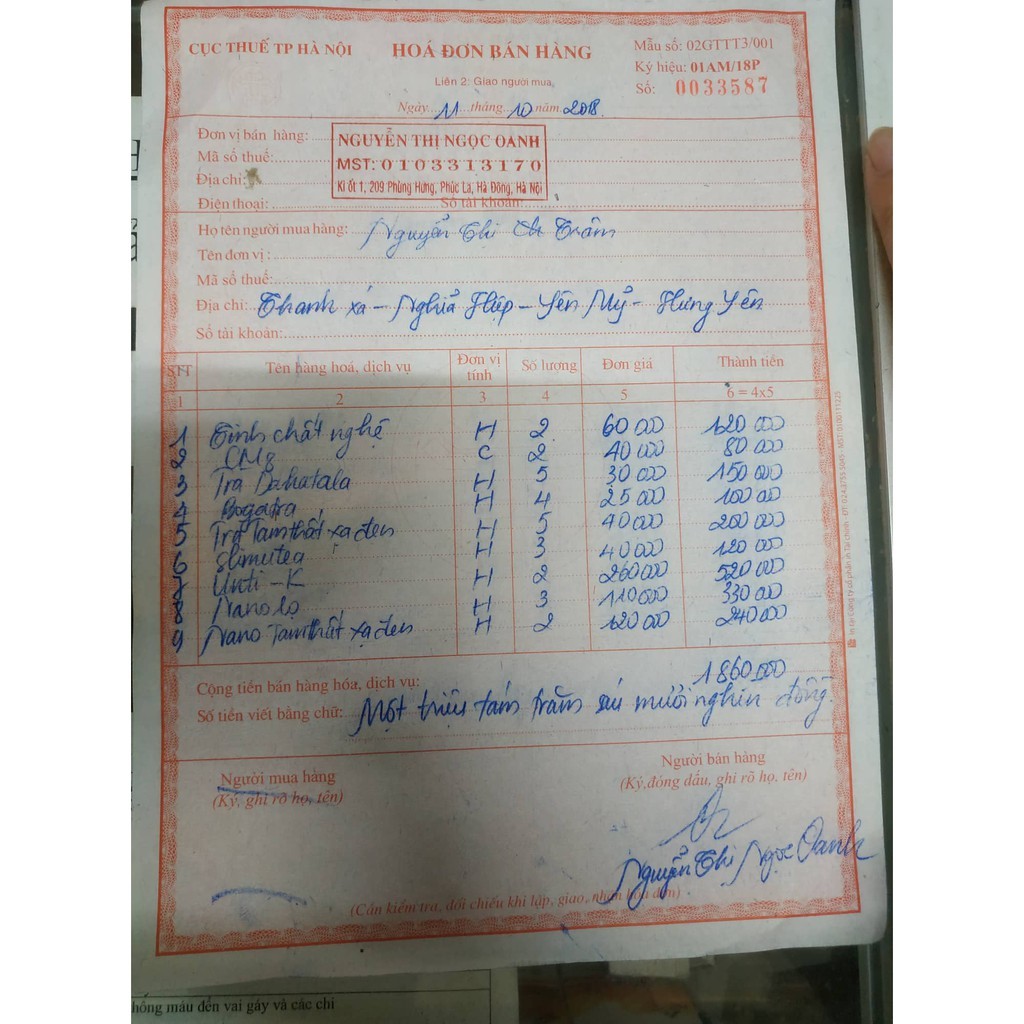 CỤC THUẾ TP HÀ NỘI
HOÁ ĐƠN BÁN HÀNG
Mẫu số: 02GTTT3/001
Liên 2: Giao người mua
Ký hiệu: 01AM/18P
Số: 0033587
Ngày 11 tháng 10 năm 2018
Đơn vị bán hàng: NGUYỄN THỊ NGỌC OANH
Mã số thuế: MST: 0103313170
Địa chỉ: Ki ốt 1, 209 Phùng Hưng, Phúc La, Hà Đông, Hà Nội
Điện thoại: Số tài khoản:
Họ tên người mua hàng: Nguyễn Thi Trâm
Tên đơn vị:
Mã số thuế:
Địa chỉ: Thanh xá - Nghĩa Hiệp - Yên Mỹ - Hưng Yên
Số tài khoản:
STT Tên hàng hoá, dịch vụ Đơn vị tính Số lượng Đơn giá Thành tiền
1 2 3 4 5 6 = 4x5
1 Tinh chất nghệ H 2 60 000 120 000
2 CM8 C 2 40 000 80 000
3 Trà Dahatala H 5 30 000 150 000
4 Bogatra H 4 25 000 100 000
5 Trà Tam thất xạ đen H 5 40 000 200 000
6 Slimutea H 3 40 000 120 000
7 Unti-K H 2 260 000 520 000
8 Nano lọ H 3 110 000 330 000
9 Nano Tam thất xạ đen H 2 120 000 240 000
Cộng tiền bán hàng hóa, dịch vụ: 1 860 000
Số tiền viết bằng chữ: Một triệu tám trăm sáu mươi nghìn đồng.
Người mua hàng
(Ký, ghi rõ họ, tên)
Người bán hàng
(Ký, đóng dấu, ghi rõ họ, tên)
Nguyễn Thi Ngọc Oanh
(Cần kiểm tra, đối chiếu khi lập, giao, nhận hóa đơn)
hống máu đến vai gáy và các chi